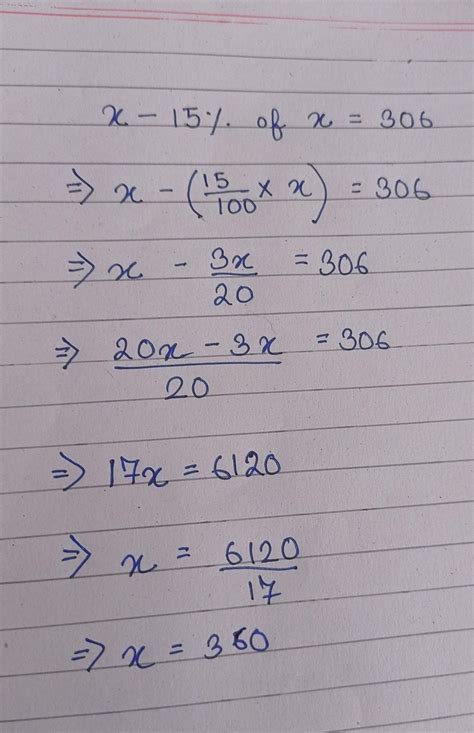 x - 15% of x = 306
⇒ x - (15/100 × x) = 306
⇒ x - 3x/20 = 306
⇒ (20x - 3x)/20 = 306
⇒ 17x = 6120
⇒ x = 6120/17
⇒ x = 360